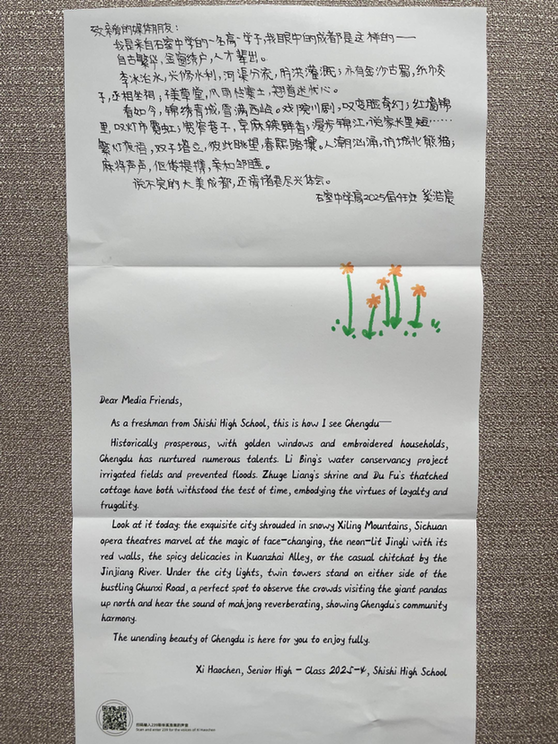 致亲爱的媒体朋友：
我是来自石室中学的一名高一学子，我眼中的成都是这样的——
自古繁华，金窗绣户，人才辈出。
李冰治水，兴修水利，河渠分流，防洪灌溉；
子，丞相坐祠；
看如今，锦绣青城，雪满西岭。戏院川剧，叹变脸奇幻；红墙锦
里，叹灯市霓虹；宽窄巷子，享麻辣鲜香；漫步锦江，说家长里短……
繁灯夜宿，双子塔立，彼此眺望，春熙路攘。人潮汹涌，访城北熊猫；
麻将声声，但传提携，亲和邻睦。
说不完的大美成都，还请诸君尽兴体会。
石室中学高2025届4班
Dear Media Friends,
As a freshman from Shishi High School, this is how I see Chengdu—
Historically prosperous, with golden windows and embroidered households,
Chengdu has nurtured numerous talents. Li Bing's water conservancy project
irrigated fields and prevented floods. Zhuge Liang's shrine and Du Fu's thatched
cottage have both withstood the test of time, embodying the virtues of loyalty and
frugality.
Look at it today: the exquisite city shrouded in snowy Xiling Mountains, Sichuan
opera theatres marvel at the magic of face-changing, the neon-lit Jingli with its
red walls, the spicy delicacies in Kuanzhai Alley, or the casual chitchat by the
Jinjiang River. Under the city lights, twin towers stand on either side of the
bustling Chunxi Road, a perfect spot to observe the crowds visiting the giant pandas
up north and hear the sound of mahjong reverberating, showing Chengdu's community
harmony.
The unending beauty of Chengdu is here for you to enjoy fully.
Xi Haochen, Senior High - Class 2025-4, Shishi High School